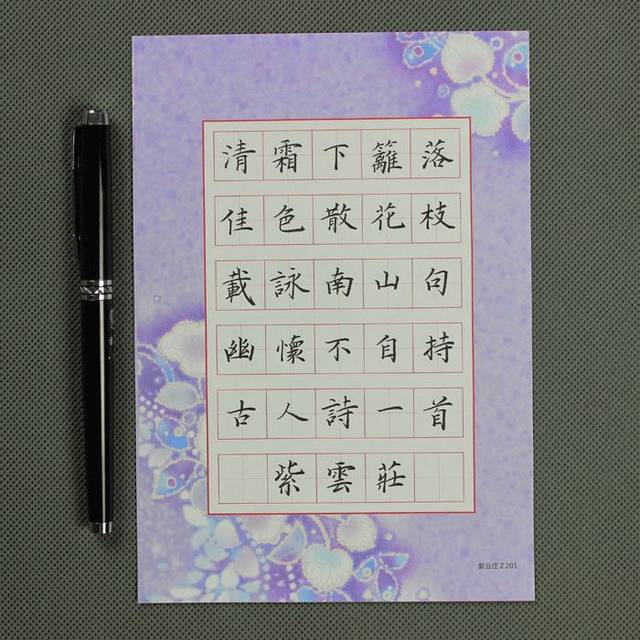 清霜下籬落
佳色散花枝
載詠南山句
幽懷不自持
古人詩一首
紫雲莊
紫云庄Z201